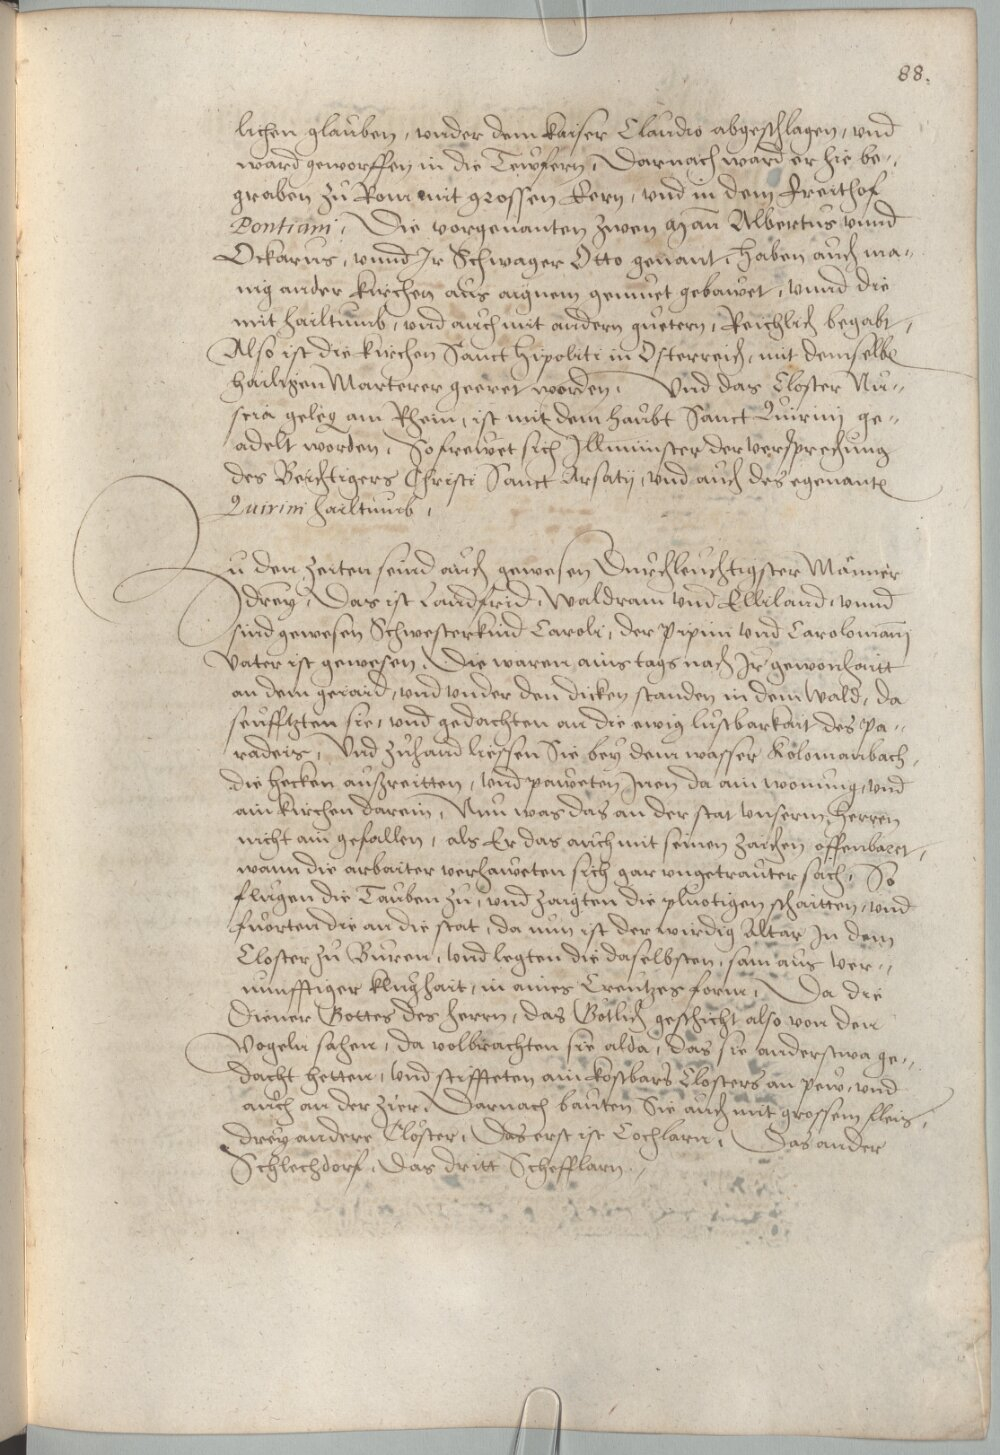 88.
lichen glauben, vnder dem kaiser Claudio abgeschlagen, vnd
ward geworffen in die Teyfern, Darnach ward er hie be-
graben zu Rom mit grossen Eern, vnd in dem Freithof
Pontiani, Die vorgenanten zwen Man Albertus vnnd
Ockarus, vnnd Ir Schwager Otto genant, Haben auch ma-
nig ander kirchen aus aignem gemuet gebawet, vnnd die
mit hailtumb, vnd auch mit andern guetern, Reichlich begabt,
Also ist die kirchen Sanct Hipoliti in Osterreich, mit demselbn
hailigen Marterer geeret worden, Vnd das Closter Nu-
scia geleg am Rhein, ist mit dem haubt Sanct Quirinj ge-
adelt worden, So frewet sich Illmünster der versprechung
des Beichtigers Christi Sanct Arsatij, vnd auch des egenantn
Quirini hailtumb,
Zu den Zeiten seind auch gewesen Durchleuchtigster Männer
drey, Das ist Landfrid, Waldram vnd Elliland, vnnd
sind gewesen Schwesterkind Caroli, der Pipini vnd Carolomanj
Vater ist gewesen, Die waren ains tags nach Ir gewonhaitt
an dem geiaid, vnd vnder den dicken standen in dem Wald, da
seufftzten sie, vnd gedachten an die ewig lustbarkait des Pa-
radeis, Vnd zuhand liessen Sie bey dem wasser Kolomanbach,
die hecken außreitten, vnd paweten Inen da ain wonung, vnd
ain kirchen darein, Nun was das an der stat vnserm Herren
nicht ain gefallen, als Er das auch mit seinen zaichen offenbaret,
wann die arbaiter verhaweten sich gar vngetrauter sach, So
flugen die Tauben zu, vnd zaigten die pluotigen schaitten, vnd
fuorten die an die stat, da nun ist der wirdig Altar In dem
Closter zu Buren, vnd legten die daselbsten, sam aus ver-
nunfftiger klughait, in aines Creutzes form, Da die
Diener Gottes des herrn, das Götlich geschicht also von den
Vogeln sahen, da volbrachten sie alda, das sie anderstwa ge-
dacht hetten, vnd stiffteten ain kostbars Closters an pew, vnd
auch an der zier, Darnach bauten Sie auch mit grossem fleis,
drey andere Clöster, Das erst ist Cochlarn, Das ander
Schlechdorf, Das dritt Schefflarn.